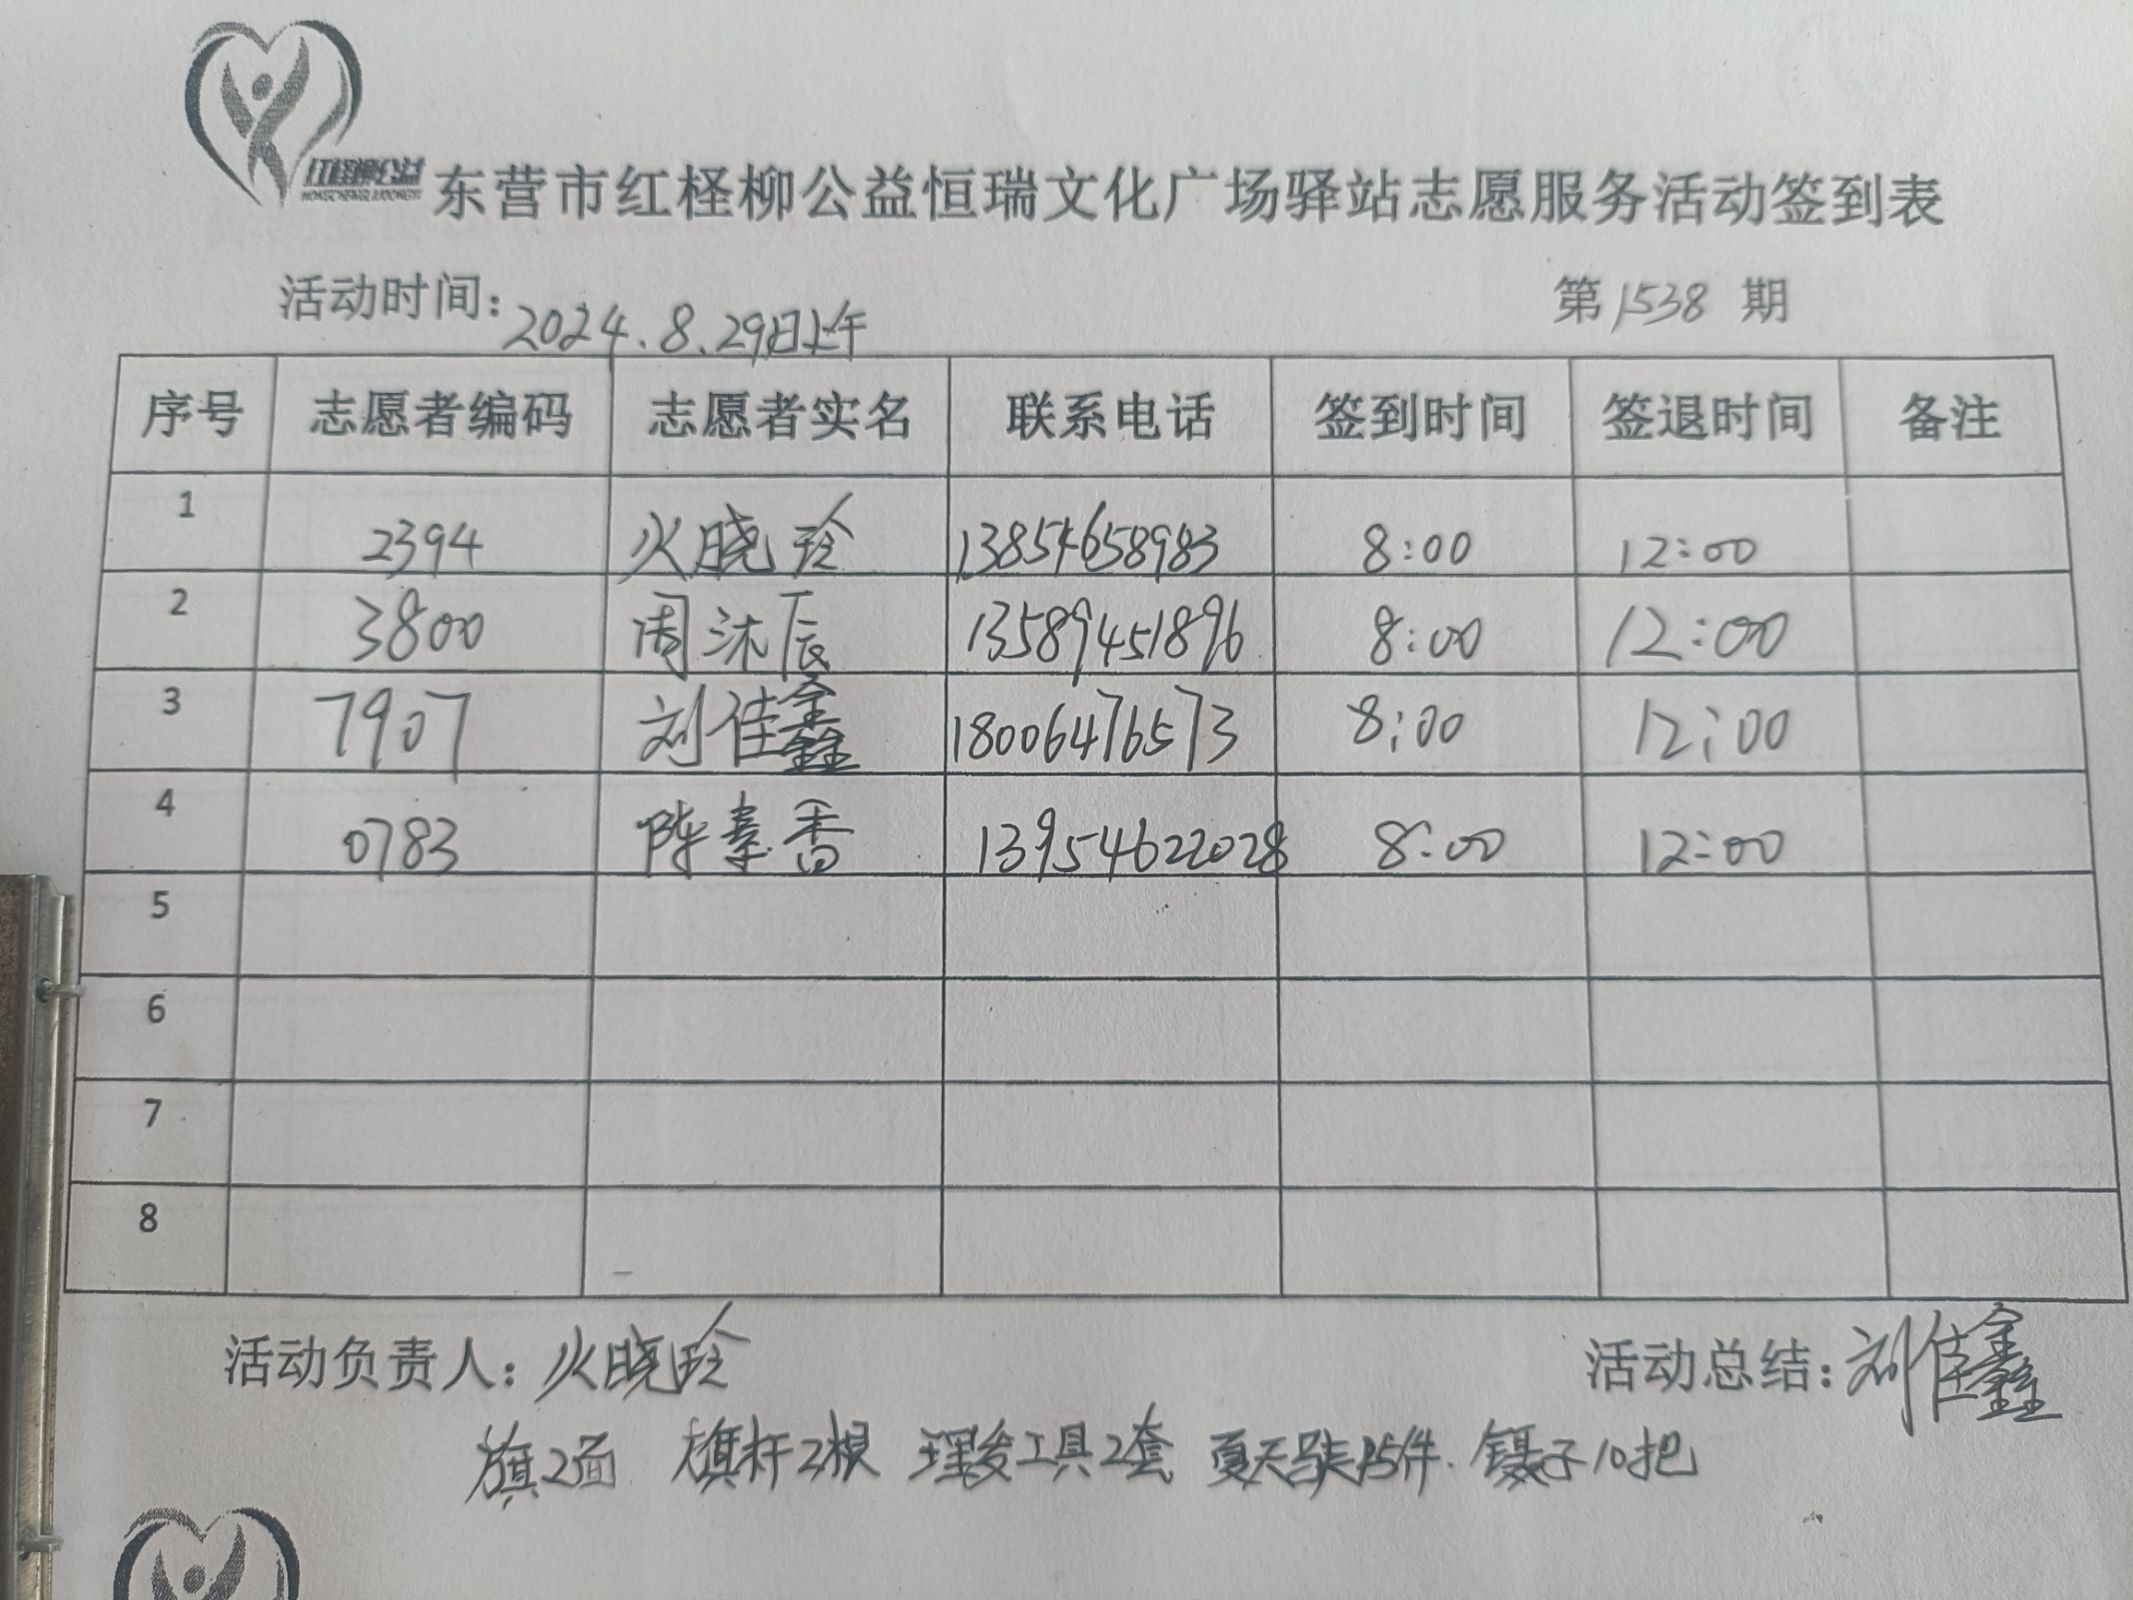 红柽柳公益
东营市红柽柳公益恒瑞文化广场驿站志愿服务活动签到表
活动时间: 2024.8.29日上午 第1538期
序号 志愿者编码 志愿者实名 联系电话 签到时间 签退时间 备注
1 2394 火晓玲 13854658983 8:00 12:00
2 3800 周沐辰 13589451896 8:00 12:00
3 7907 刘佳鑫 18006476573 8:00 12:00
4 0783 陈素香 13954622028 8:00 12:00
5
6
7
8
活动负责人: 火晓玲 活动总结: 刘佳鑫
旗2面 旗杆2根 理发工具2套 夏天 件. 镊子10把